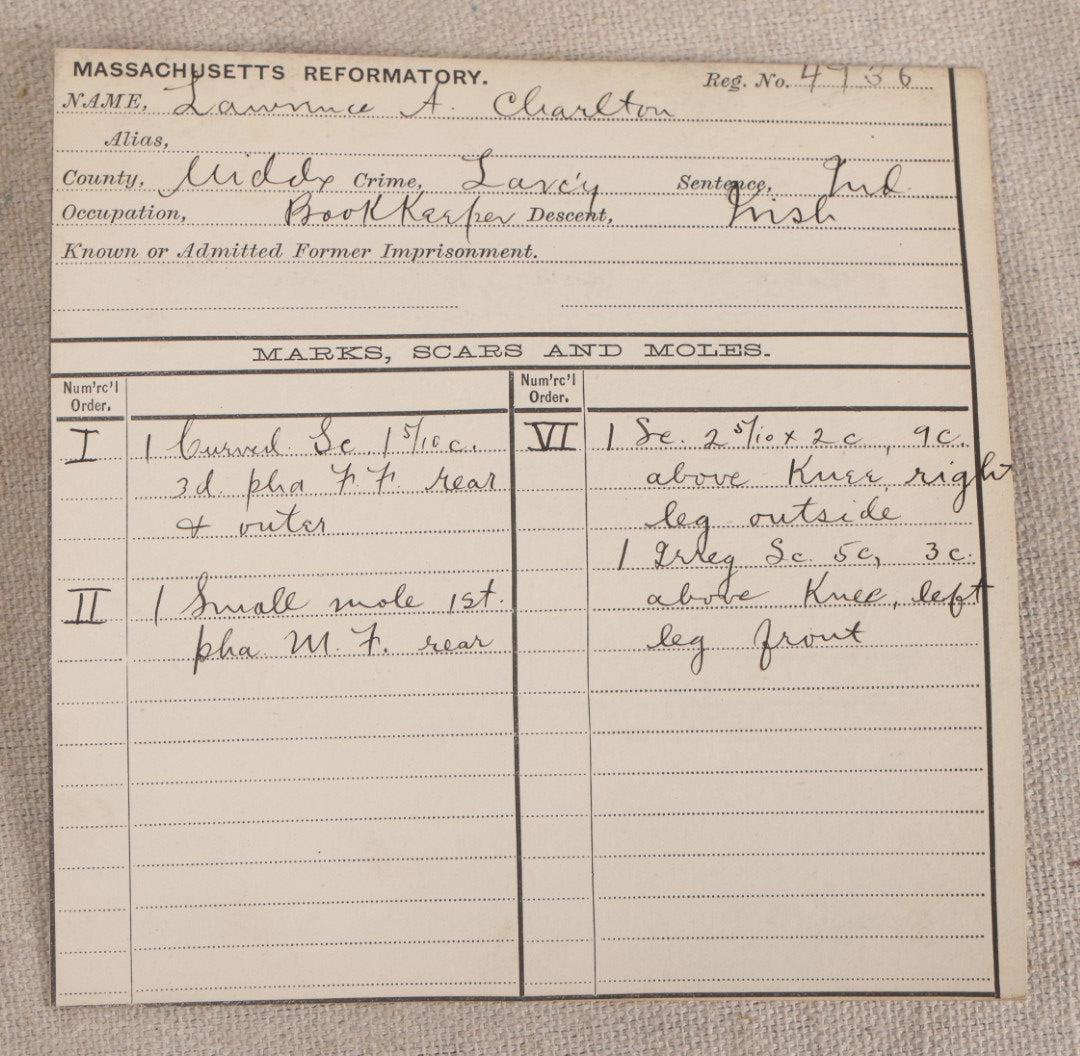 MASSACHUSETTS REFORMATORY. Reg. No. 4736
NAME, Lawrence A. Charlton
Alias,
County, Middx Crime, Larc'y Sentence, Ind.
Occupation, BookKeeper Descent, Irish
Known or Admitted Former Imprisonment.
MARKS, SCARS AND MOLES.
Num'rc'l Order.
I 1 Curved Sc. 1 5/10 c.
3d. pha F. F. rear
& outer
II 1 Small mole 1st.
pha M. F. rear
Num'rc'l Order.
VI 1 Sc. 2 5/10 x 2 c, 9 c.
above Knee, right
leg outside
1 Irreg Sc. 5c, 3 c.
above Knee, left
leg front